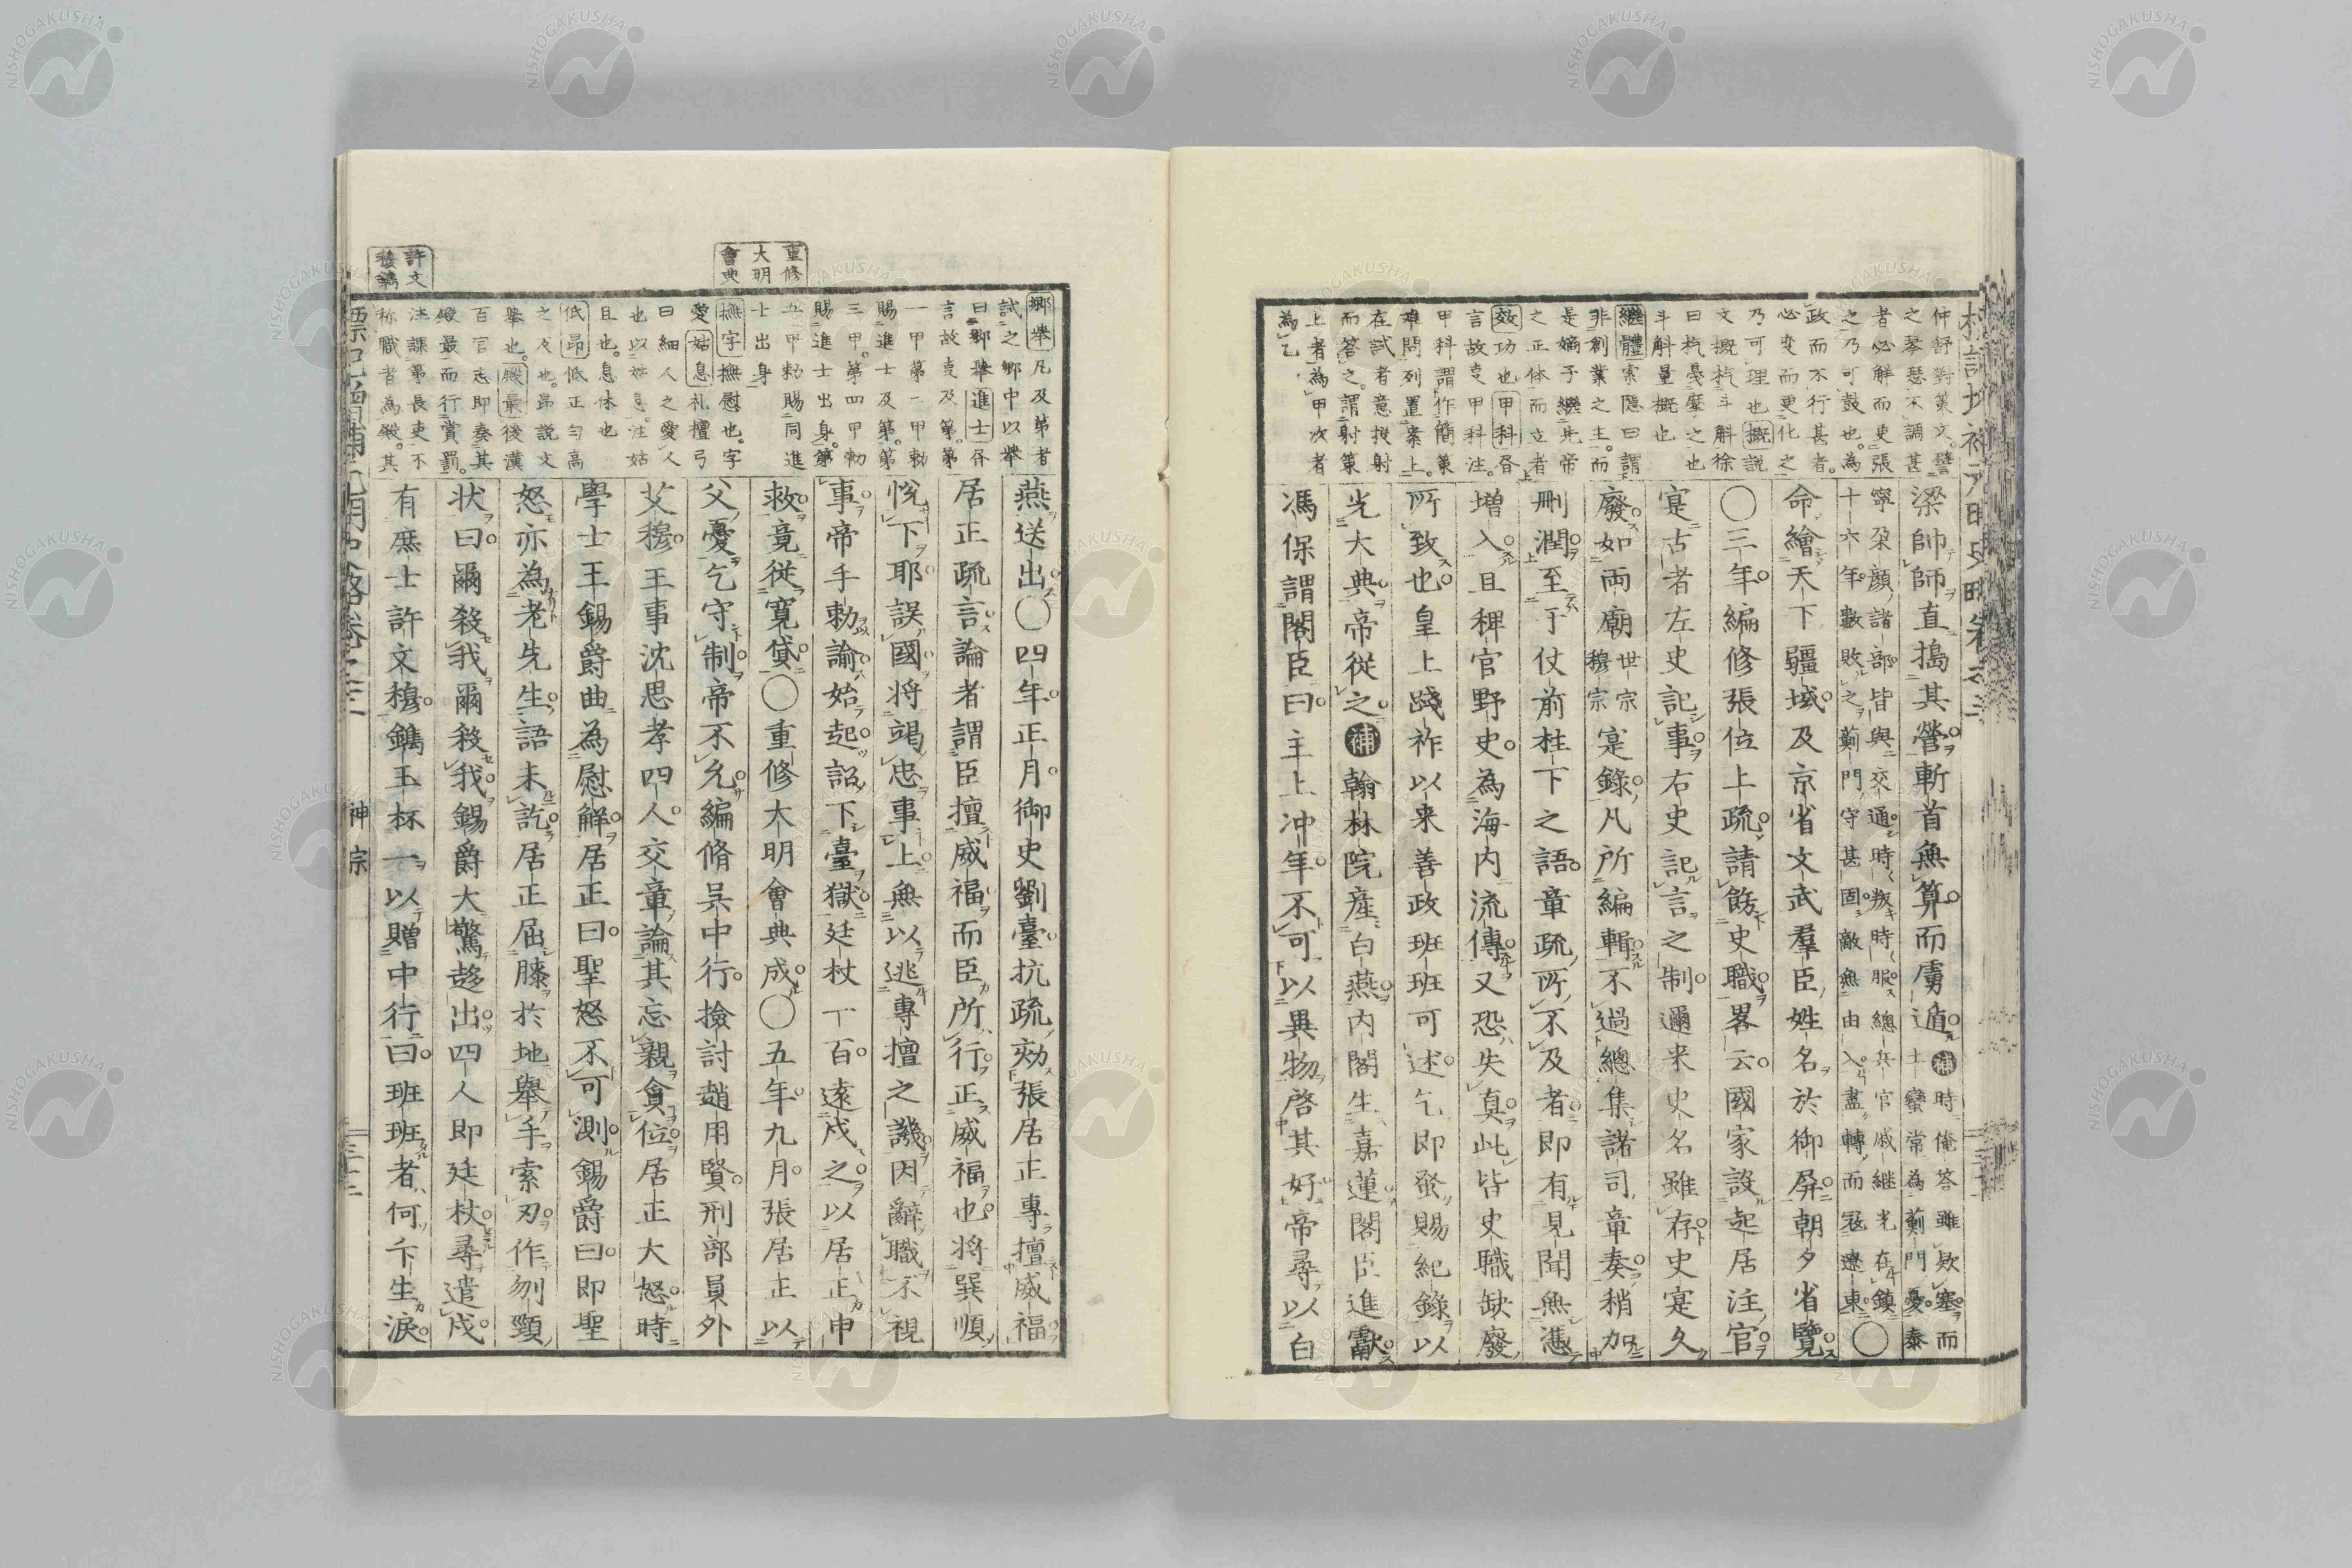 仲舒對策文。譬
之琴瑟不調甚
者必解而更張
之乃可鼓也。為
政而不行甚者。
必変而更化之
乃可理也概説
文概杚斗斛徐
曰杚戞摩之也
斗斛量概也
繼體索隠曰謂
非創業之主。而
是嫡子継先帝
之正体而立者
效功也甲科吝
言故吏甲科注。
甲科謂作簡策
难問列置案上。
在試者意投射
而答之。謂射策
上者為甲次者
為乙
梁帥師直搗其營斬首無算而虜遁補時俺答雖欵塞而
土蠻常為薊門憂泰
寧朶顔諸部皆與交通時叛時服總兵官戚継光在鎮
十六年數敗之薊門守甚固敵無由入盡轉而冦遼東〇
命繪天下疆域及京省文武羣臣姓名於御屏朝夕省覽
〇三年編修張位上疏請飭史職畧云國家設起居注官
寔古者左史記事右史記言之制邇来史名雖存史寔久
廢如両廟世宗穆宗寔錄凡所編輯不過總集諸司章奏稍加
刪潤至于仗前柱下之語章疏所不及者即有見聞無憑
增入且稗官野史為海内流傳又恐失真此皆史職缺廢
所致也皇上踐祚以来善政班班可述乞即發賜紀錄以
光大典帝從之補翰林院産白燕内閣生嘉蓮閣臣進獻
馮保謂閣臣曰主上冲年不可以異物啓其好帝尋以白
鄉舉凡及第者
試之郷中以舉
曰郷舉進士吝
言故吏及第。第
一甲第二甲敕
賜進士及第。第
三甲。第四甲勅
賜進士出身。第
五甲勅賜同進
士出身
重修
大明
會典
撫字撫慰也。字
愛姑息礼檀弓
曰細人之愛人
也以姑息。注姑
且也。息休也
低昂低正匀高
之及也。昂説文
舉也。殿最後漢
百官志即奏其
殿最而行賞罰。
注課第長吏不
称職者為殿。其
許文
穆鐫
燕送出〇四年正月御史劉臺抗疏劾張居正專擅威福
居正疏言論者謂臣擅威福而臣所行正威福也将巽順
悅下耶誤國将竭忠事上無以逃專擅之譏因辭職不視
事帝手勅諭始起詔下臺獄廷杖一百遠戍之以居正申
救竟從寛貸〇重修大明會典成〇五年九月張居正以
父憂乞守制帝不允編脩呉中行撿討趙用賢刑部員外
艾穆主事沈思孝四人交章論其忘親貪位居正大怒時
學士王錫爵曲為慰解居正曰聖怒不可測錫爵曰即聖
怒亦為老先生語未訖居正屈膝於地舉手索刃作刎頸
状曰爾殺我爾殺我錫爵大驚趍出四人即廷杖尋遣戍
有庶士許文穆鐫玉杯一以贈中行曰班班者何卞生淚
標記増補元明史略巻之三
神宗
三十二